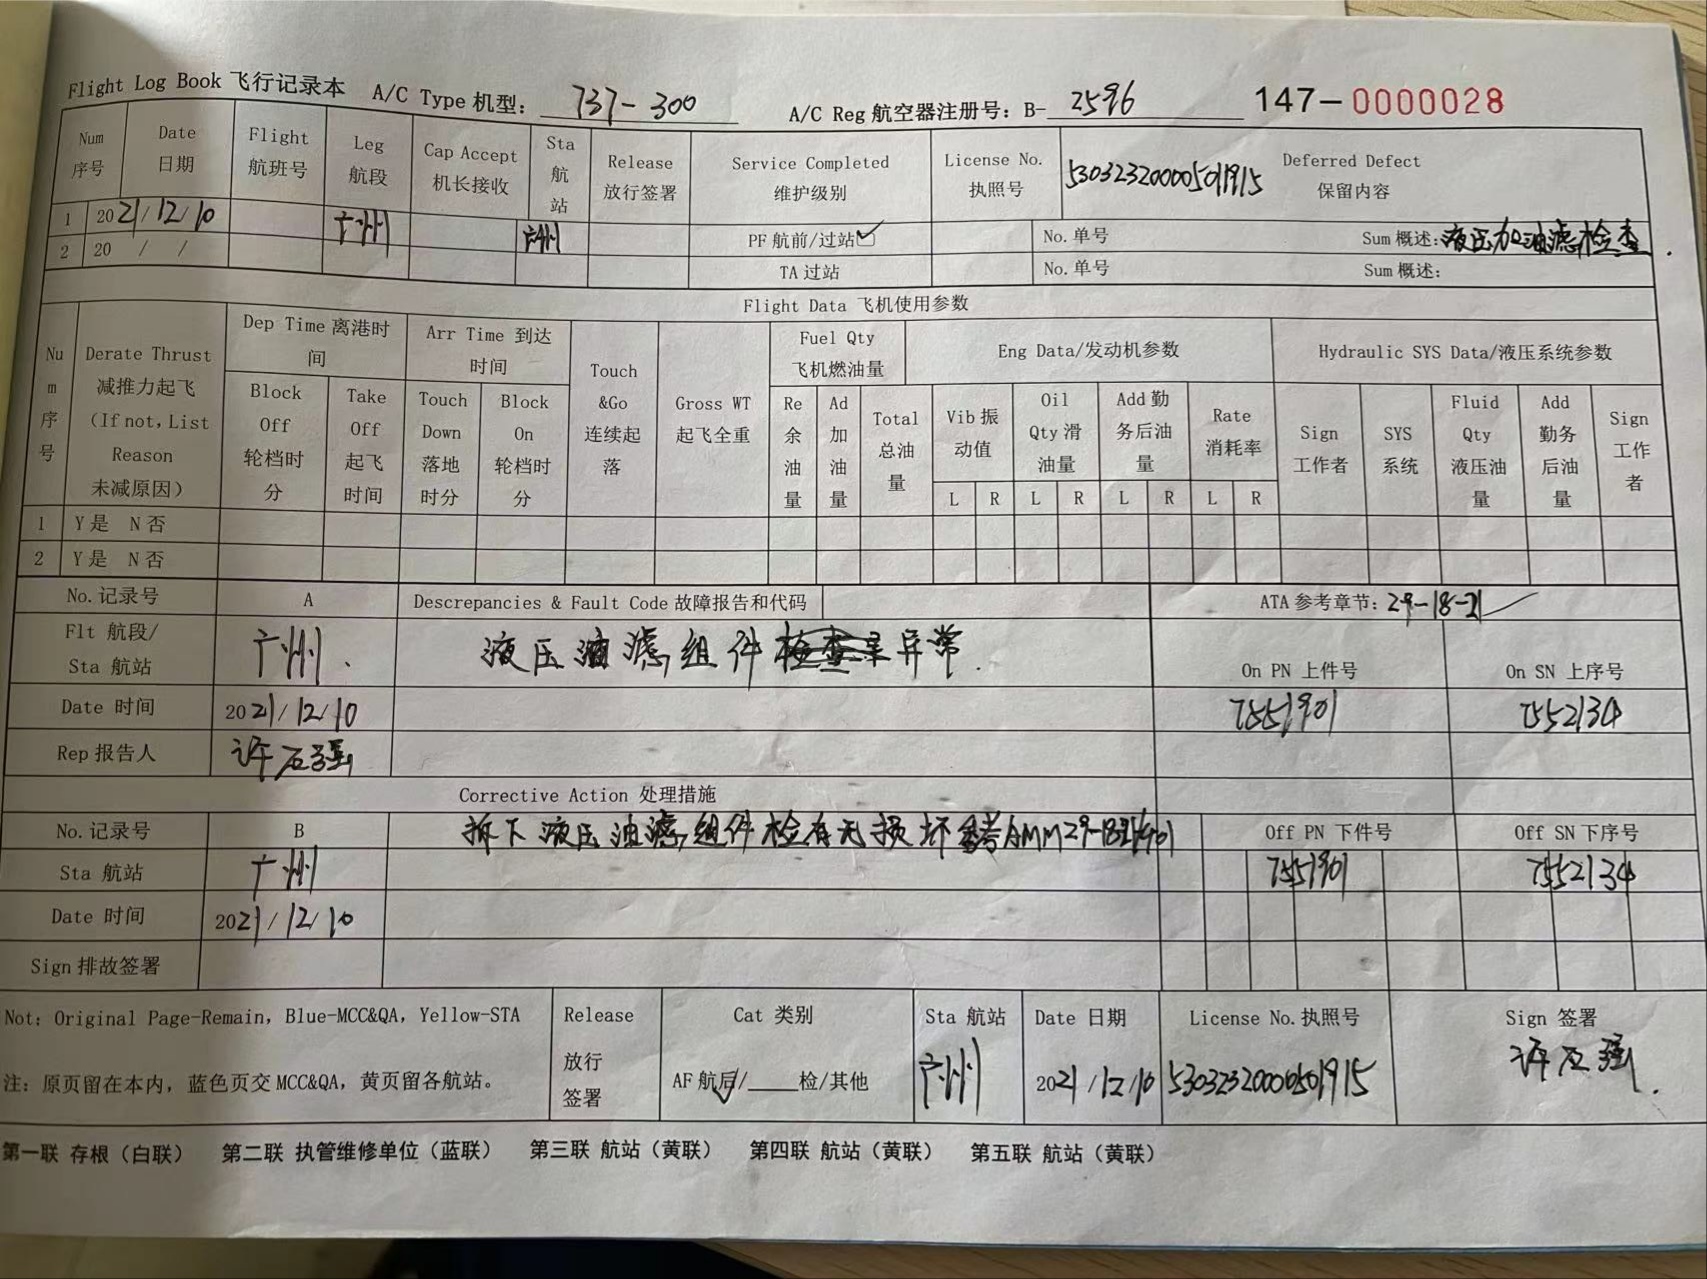 Flight Log Book 飞行记录本 A/C Type 机型: 737-300 A/C Reg 航空器注册号: B-2596 147-0000028
Num 序号 Date 日期 Flight 航班号 Leg 航段 Cap Accept 机长接收 Sta 航站 Release 放行签署 Service Completed 维护级别 License No. 执照号 530323200005011915 Deferred Defect 保留内容
1 2021/12/10 广州 广州 PF 航前/过站 No.单号 Sum 概述:液压加油滤检查.
2 20 / / TA 过站 No.单号 Sum 概述:
Flight Data 飞机使用参数
Num 序号 Derate Thrust 减推力起飞 (If not, List Reason 未减原因) Dep Time 离港时间 Arr Time 到达时间 Touch &Go 连续起落 Gross WT 起飞全重 Fuel Qty 飞机燃油量 Eng Data/发动机参数 Hydraulic SYS Data/液压系统参数
Block Off 轮档时分 Take Off 起飞时间 Touch Down 落地时分 Block On 轮档时分 Re 余油量 Ad 加油量 Total 总油量 Vib 振动值 Oil Qty 滑油量 Add 勤务后油量 Rate 消耗率 Sign 工作者 SYS 系统 Fluid Qty 液压油量 Add 勤务后油量 Sign 工作者
L R L R L R L R
1 Y是 N否
2 Y是 N否
No.记录号 A Descrepancies & Fault Code 故障报告和代码 ATA 参考章节: 29-18-21
Flt 航段/Sta 航站 广州. 液压油滤组件异常. On PN 上件号 On SN 上序号
Date 时间 2021/12/10 7551901 7552134
Rep 报告人 许石强
Corrective Action 处理措施
No.记录号 B 拆下液压油滤组件检有无损坏参考AMM29-18 Off PN 下件号 Off SN 下序号
Sta 航站 广州 7551901 7552134
Date 时间 2021/12/10
Sign 排故签署
Not: Original Page-Remain, Blue-MCC&QA, Yellow-STA Release Cat 类别 Sta 航站 Date 日期 License No.执照号 Sign 签署
注: 原页留在本内, 蓝色页交 MCC&QA, 黄页留各航站。 放行签署 AF 航后/____检/其他 广州 2021/12/10 530323200005011915 许石强.
第一联 存根(白联) 第二联 执管维修单位(蓝联) 第三联 航站(黄联) 第四联 航站(黄联) 第五联 航站(黄联)